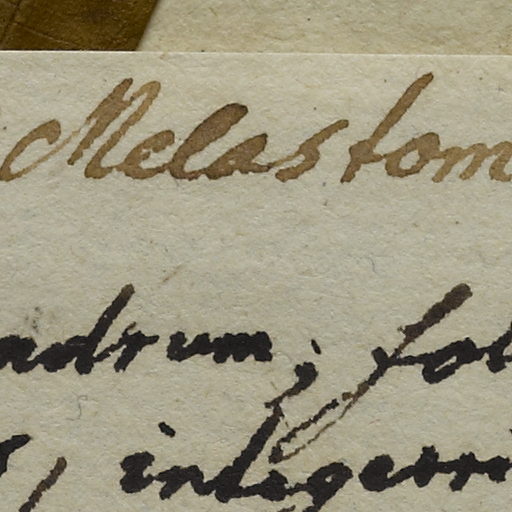 Melastom
ndrum; fol
, integerri